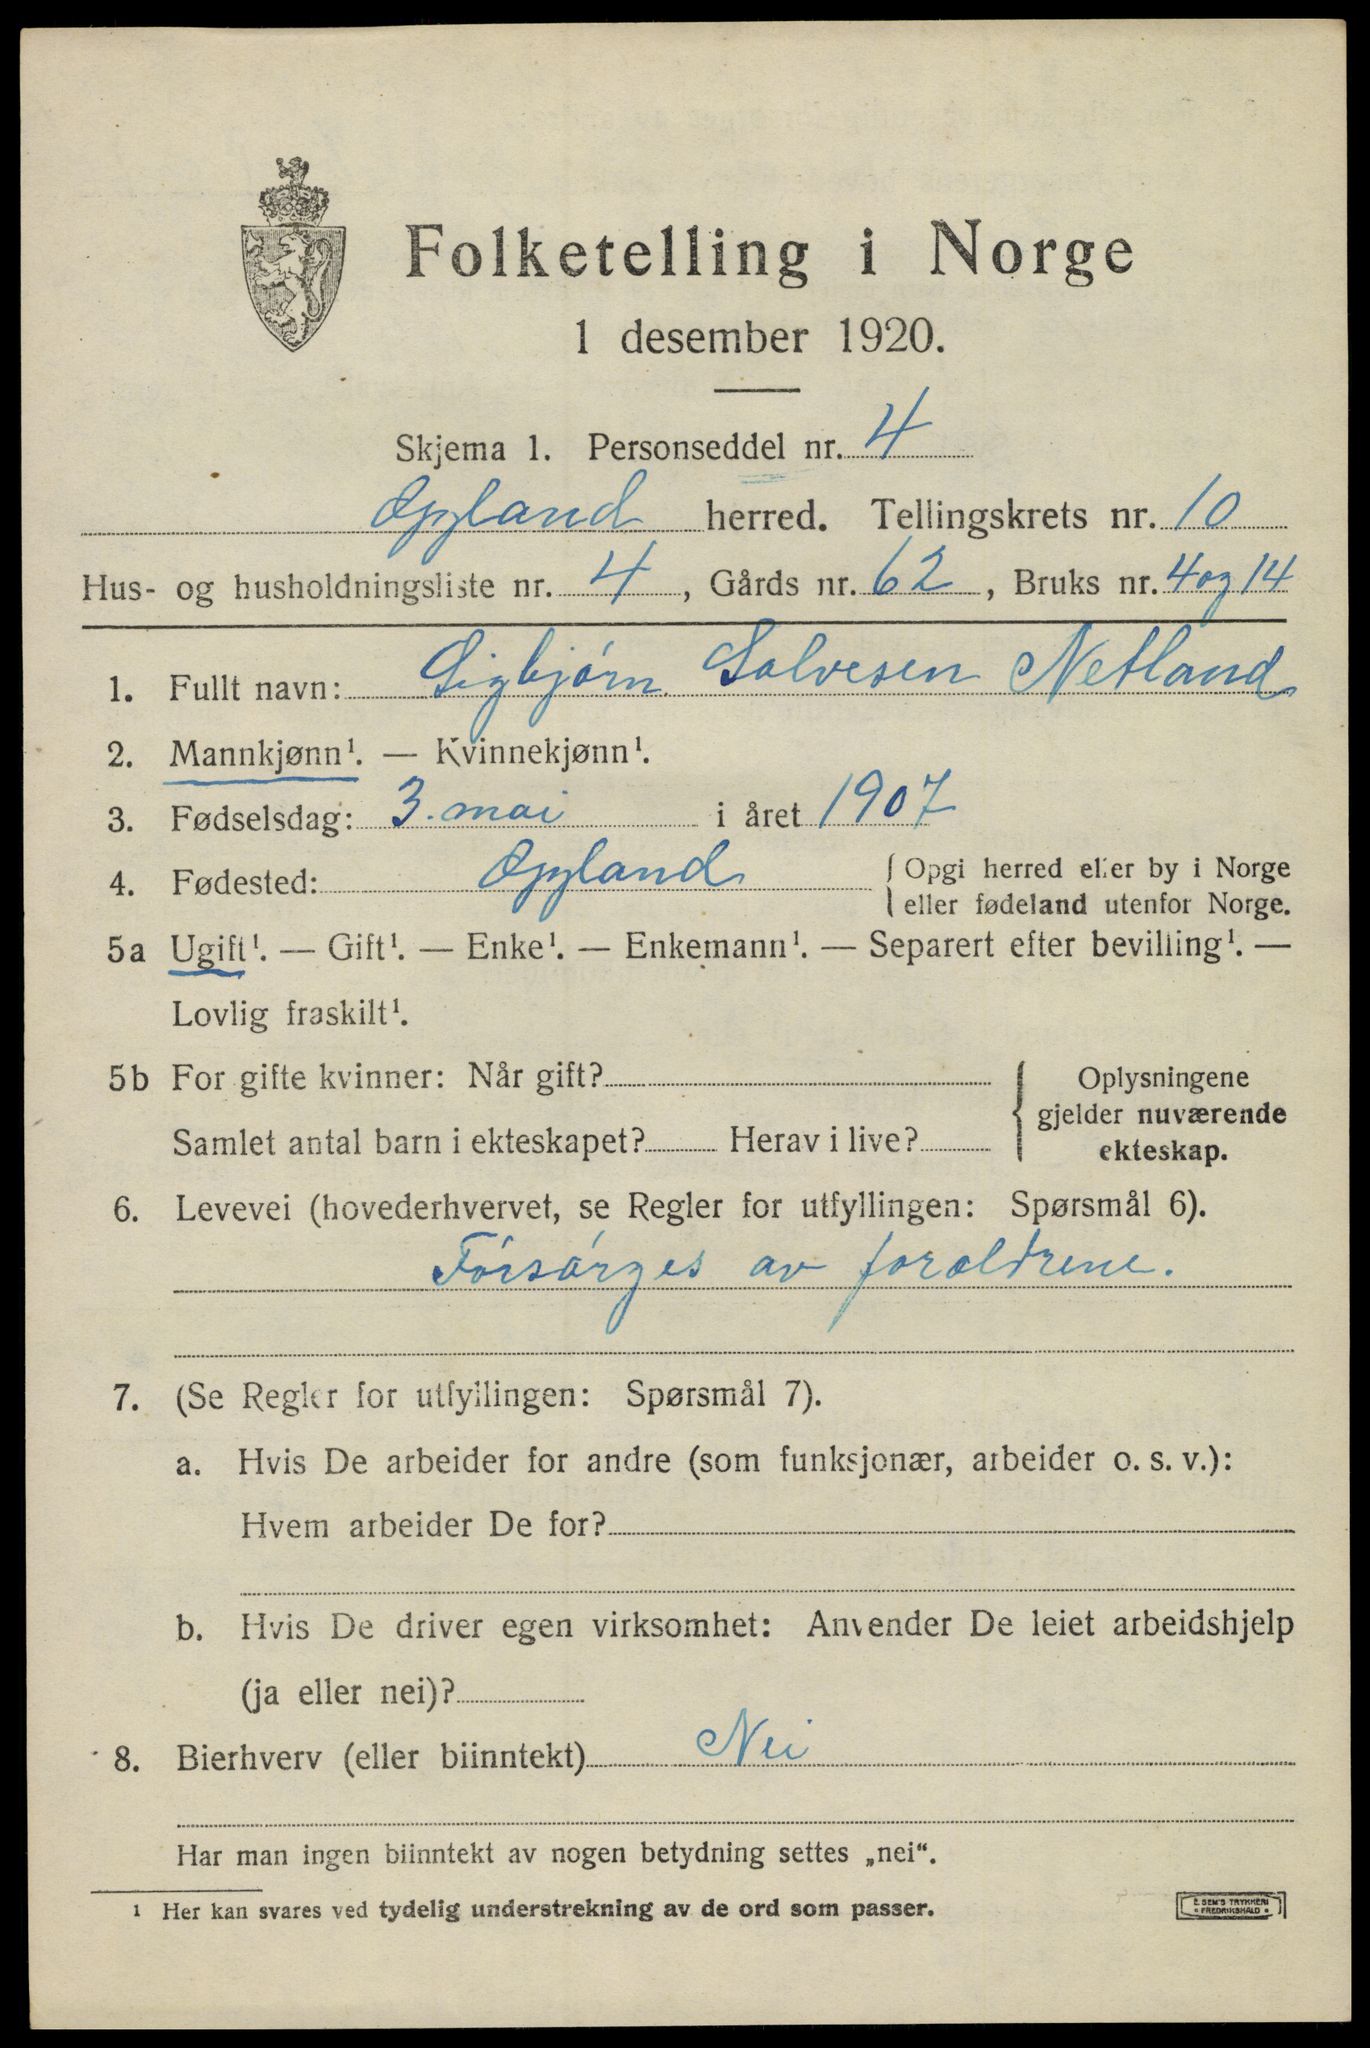 Folketelling i Norge
1 desember 1920.
Skjema 1. Personseddel nr. 4
Øyland herred. Tellingskrets nr. 10
Hus- og husholdningsliste nr. 4, Gårds nr. 62, Bruks nr. 4 og 14
1. Fullt navn: Sigbjørn Salvesen Netland
2. Mannkjønn¹. — Kvinnekjønn¹.
3. Fødselsdag: 3. mai i året 1907
4. Fødested: Øyland { Opgi herred eller by i Norge
eller fødeland utenfor Norge.
5a Ugift¹. — Gift¹. — Enke¹. — Enkemann¹. — Separert efter bevilling¹. —
Lovlig fraskilt¹.
5b For gifte kvinner: Når gift? { Oplysningene
gjelder nuværende
Samlet antal barn i ekteskapet? Herav i live? ekteskap.
6. Levevei (hovederhvervet, se Regler for utfyllingen: Spørsmål 6).
Forsørges av foraldrene.
7. (Se Regler for utfyllingen: Spørsmål 7).
a. Hvis De arbeider for andre (som funksjonær, arbeider o. s. v.):
Hvem arbeider De for?
b. Hvis De driver egen virksomhet: Anvender De leiet arbeidshjelp
(ja eller nei)?
8. Bierhverv (eller biinntekt) Nei
Har man ingen biinntekt av nogen betydning settes „nei“.
1 Her kan svares ved tydelig understrekning av de ord som passer.
E. SEM'S TRYKKERI
FREDRIKSHALD